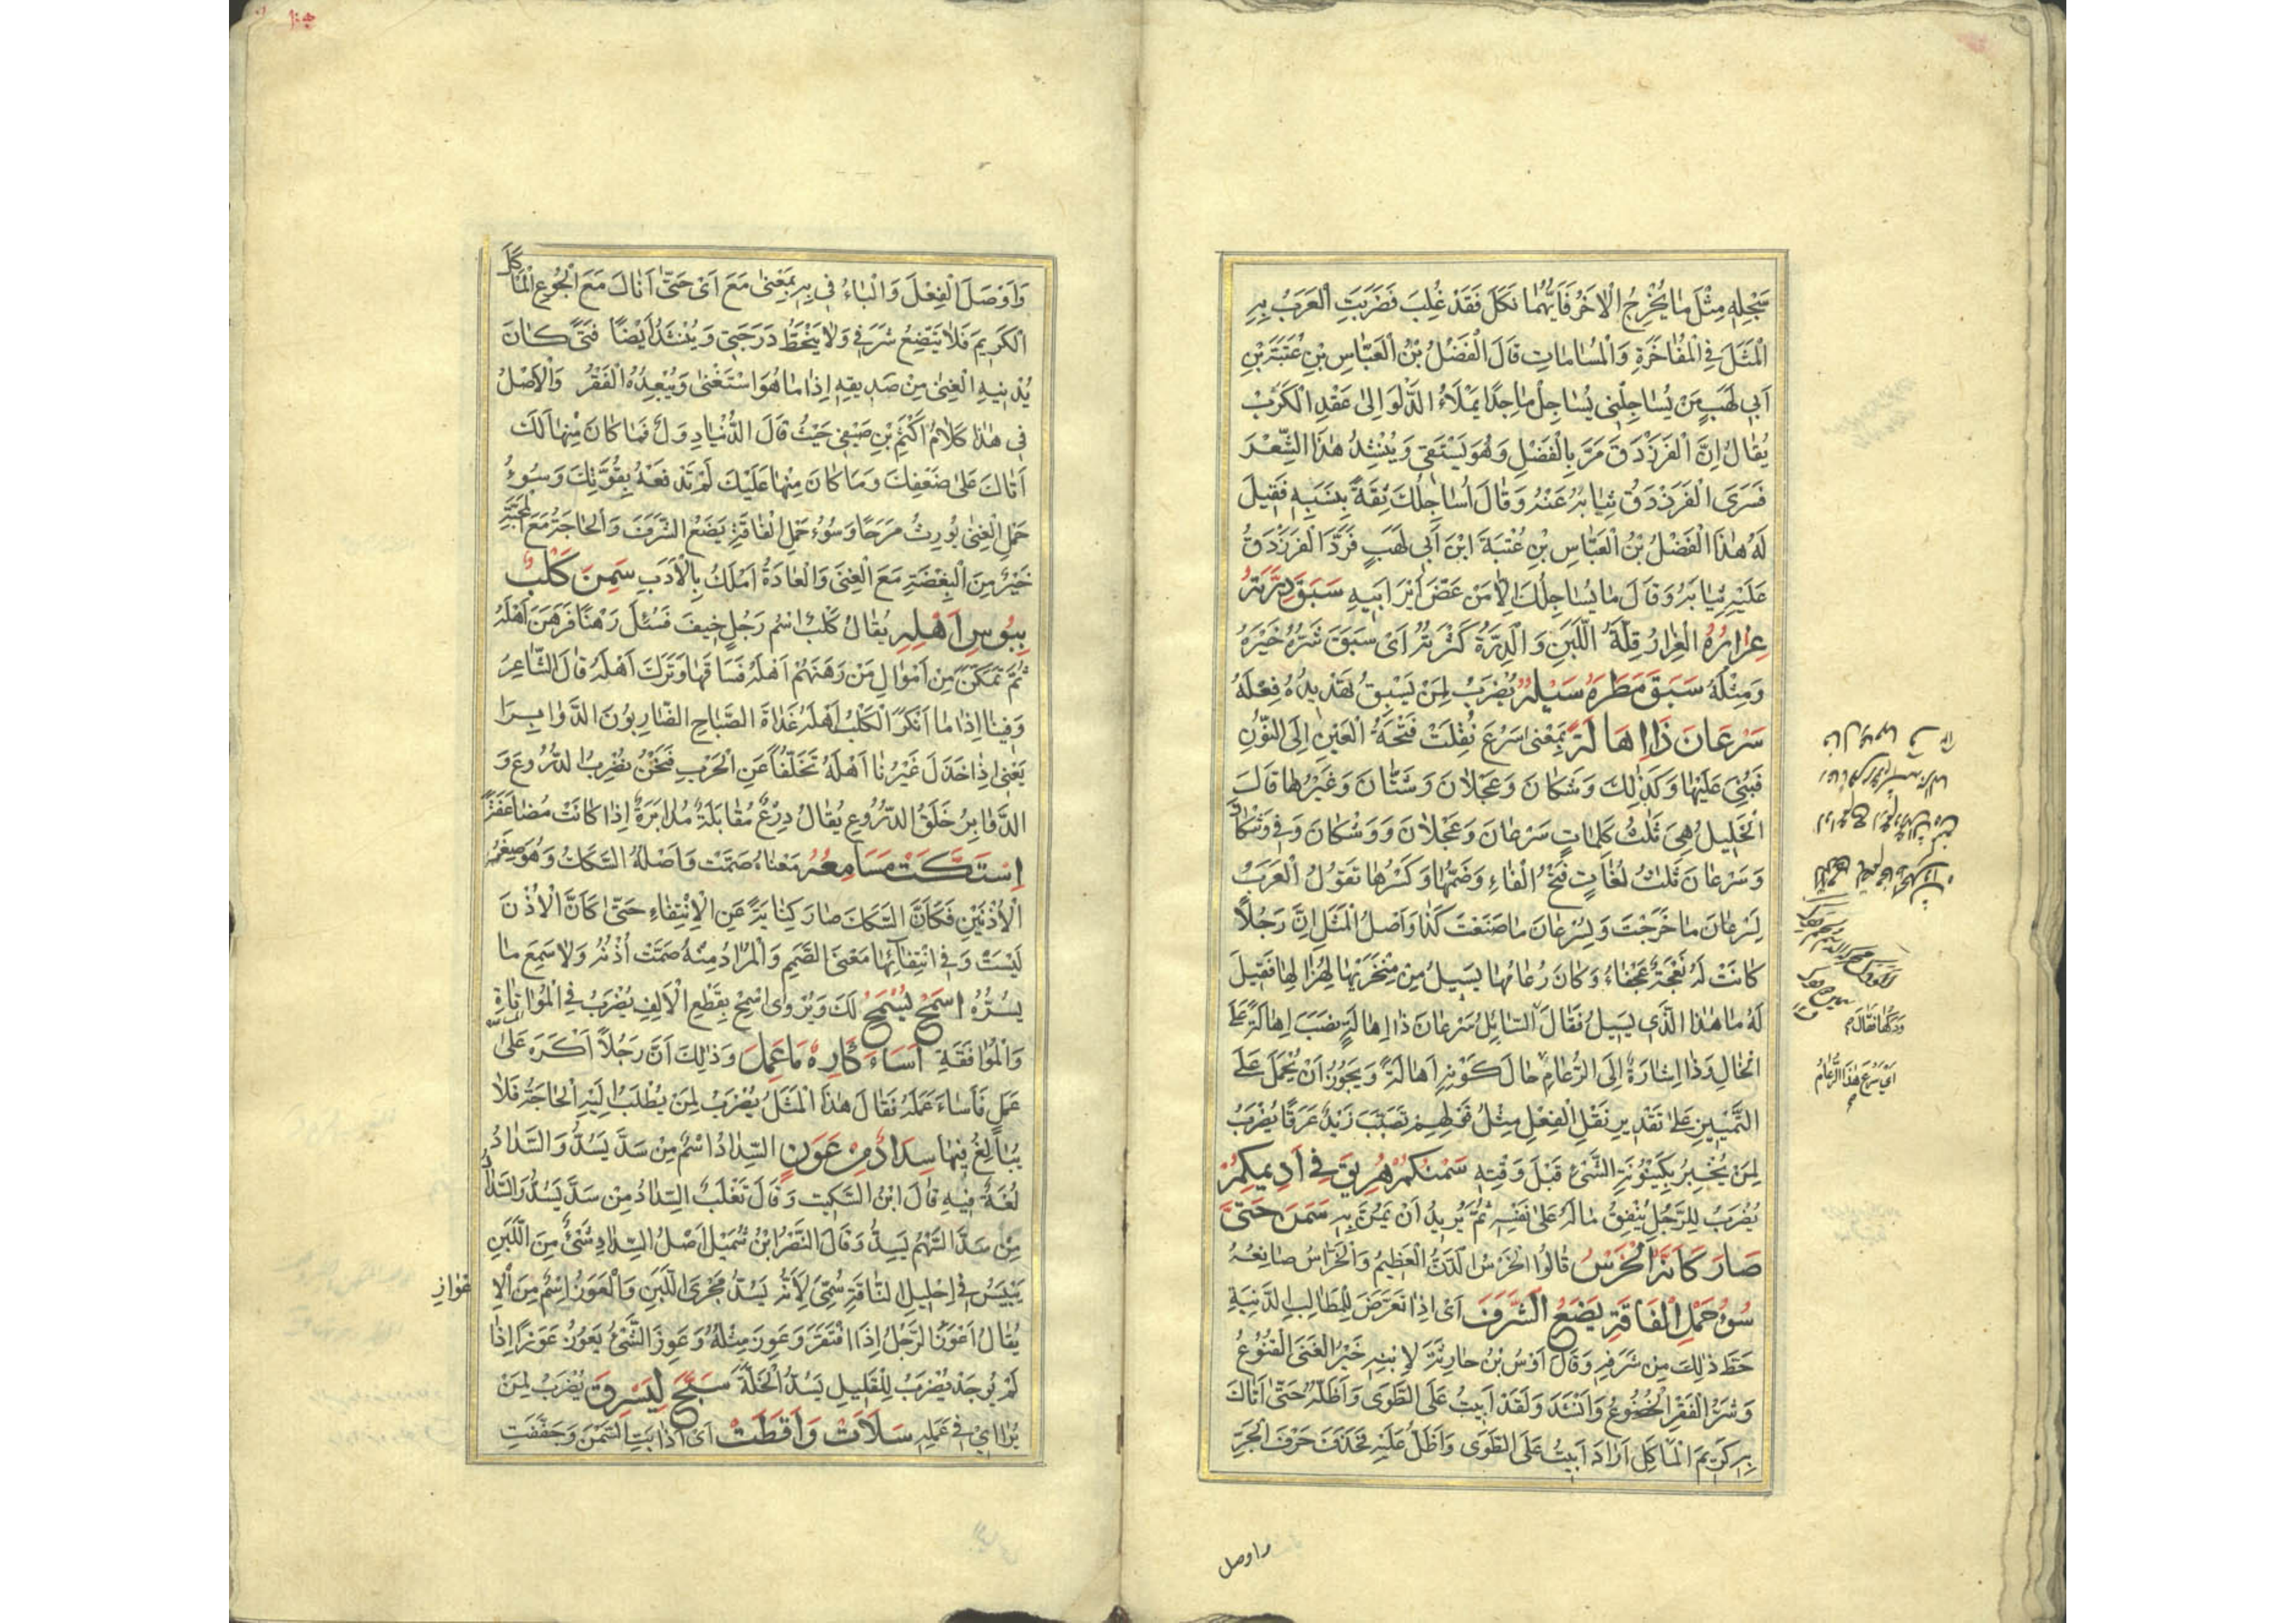 سَجْلِهِ مِثْلَ مَا يُخْرِجُ الْاٰخَرُ فَاَيُّهُمَا نَكَلَ فَقَدْ غُلِبَ فَضَرَبَتِ الْعَرَبُ بِهِ
الْمَثَلَ فِي الْمُفَاخَرَةِ وَالْمُسَامَاتِ قَالَ الْفَضْلُ بْنُ الْعَبَّاسِ بْنِ عُتْبَةَ بْنِ
اَبِي لَهَبٍ مَنْ يُسَاجِلْنِي يُسَاجِلْ مَاجِدًا يَمْلَاُ الدَّلْوَ اِلٰى عَقْدِ الْكَرَبْ
يُقَالُ اِنَّ الْفَرَزْدَقَ مَرَّ بِالْفَضْلِ وَهُوَ يَسْتَقِي وَيُنْشِدُ هٰذَا الشِّعْرَ
فَسَرَى الْفَرَزْدَقُ ثِيَابَهُ عَنْهُ وَقَالَ اُسَاجِلُكَ ثِقَةً بِنَسَبِهِ فَقِيلَ
لَهُ هٰذَا الْفَضْلُ بْنُ الْعَبَّاسِ بْنِ عُتْبَةَ ابْنَ اَبِي لَهَبٍ فَرَدَّ الْفَرَزْدَقُ
عَلَيْهِ ثِيَابَهُ وَقَالَ مَا يُسَاجِلُكَ اِلَّا مَنْ عَضَّ اَيْرَ اَبِيهِ سَبَقَ دِرَّتَهُ
غِرَارُهُ الْغِرَارُ قِلَّةُ اللَّبَنِ وَالدِّرَّةُ كَثْرَتُهُ اَىْ سَبَقَ شَرُّهُ خَيْرَهُ
وَمِثْلُهُ سَبَقَ مَطَرَهُ سَيْلُهُ يُضْرَبُ لِمَنْ يَسْبِقُ تَهْدِيدُهُ فِعْلَهُ
سَرْعَانَ ذَا اِهَالَةً بِمَعْنٰى سَرُعَ نُقِلَتْ فَتْحَةُ الْعَيْنِ اِلَى النُّونِ
فَبُنِيَ عَلَيْهَا وَكَذٰلِكَ وَشْكَانَ وَعَجْلَانَ وَشَتَّانَ وَغَيْرُهَا قَالَ
الْخَلِيلُ هِيَ ثَلٰثُ كَلِمَاتٍ سَرْعَانَ وَعَجْلَانَ وَوَشْكَانَ وَفِي وَشْكَانَ
وَسَرْعَانَ ثَلٰثُ لُغَاتٍ فَتْحُ الْفَاءِ وَضَمُّهَا وَكَسْرُهَا تَقُولُ الْعَرَبُ
لَسَرْعَانَ مَا خَرَجْتَ وَلَسَرْعَانَ مَا صَنَعْتَ كَذَا وَاَصْلُ الْمَثَلِ اِنَّ رَجُلًا
كَانَتْ لَهُ نَعْجَةٌ عَجْفَاءُ وَكَانَ رُعَامُهَا يَسِيلُ مِنْ مِنْخَرَيْهَا لِهُزَالِهَا فَقِيلَ
لَهُ مَا هٰذَا الَّذِي يَسِيلُ فَقَالَ السَّائِلُ سَرْعَانَ ذَا اِهَالَةً نَصَبَ اِهَالَةً عَلَى
الْحَالِ وَذَا اِشَارَةٌ اِلَى الرُّعَامِ حَالَ كَوْنِهِ اِهَالَةً وَيَجُوزُ اَنْ يُحْمَلَ عَلَى
التَّمْيِيزِ عَلٰى تَقْدِيرِ نَقْلِ الْفِعْلِ مِثْلُ قَوْلِهِمْ تَصَبَّبَ زَيْدٌ عَرَقًا يُضْرَبُ
لِمَنْ يُخْبِرُ بِكَيْنُونَةِ الشَّيْءِ قَبْلَ وَقْتِهِ سَمْنُكُمْ هُرِيقَ فِي اَدِيمِكُمْ
يُضْرَبُ لِلرَّجُلِ يُنْفِقُ مَالَهُ عَلٰى نَفْسِهِ ثُمَّ يُرِيدُ اَنْ يَمُنَّ بِهِ سَمِنَ حَتَّى
صَارَ كَاَنَّهُ الْخَرْسُ قَالُوا الْخَرْسُ الدَّنُّ الْعَظِيمُ وَالْخَرَّاسُ صَانِعُهُ
سُوءُ حَمْلِ الْفَاقَةِ يَضَعُ الشَّرَفَ اَىْ اِذَا تَعَرَّضَ لِلْمَطَالِبِ الدَّنِيَّةِ
حَطَّ ذٰلِكَ مِنْ شَرَفِهِ وَقَالَ اَوْسُ بْنُ حَارِثَةَ لِابْنِهِ خَيْرُ الْغِنَى الْقُنُوعُ
وَشَرُّ الْفَقْرِ الْخُضُوعُ وَاَنْشَدَ وَلَقَدْ اَبِيتُ عَلَى الطَّوَى وَاَظَلُّهُ حَتّٰى اَنَالَ
بِهِ كَرِيمَ الْمَأْكَلِ اَرَادَ اَبِيتُ عَلَى الطَّوَى وَاَظَلُّ عَلَيْهِ فَحَذَفَ حَرْفَ الْجَرِّ
وَدَكُهَا فَقَالَ م
اَىْ سَرُعَ هٰذَا الرُّعَامُ
واوصل
وَاَوْصَلَ الْفِعْلَ وَالْبَاءُ فِي بِهِ بِمَعْنٰى مَعَ اَىْ حَتّٰى اَنَالَ مَعَ الْجُوعِ الْمَأْكَلَ
الْكَرِيمَ فَلَا يَتَّضِعُ شَرَفِي وَلَا يَنْحَطُّ دَرَجَتِي وَيُنْشَدُ اَيْضًا فَتًى كَانَ
يُدْنِيهِ الْغِنٰى مِنْ صَدِيقِهِ اِذَا مَا هُوَ اسْتَغْنٰى وَيُبْعِدُهُ الْفَقْرُ وَالْاَصْلُ
فِي هٰذَا كَلَامُ اَكْثَمَ بْنِ صَيْفِي حَيْثُ قَالَ الدُّنْيَا دِوَلٌ فَمَا كَانَ مِنْهَا لَكَ
اَتَاكَ عَلٰى ضَعْفِكَ وَمَا كَانَ مِنْهَا عَلَيْكَ لَمْ تَدْفَعْهُ بِقُوَّتِكَ وَسُوءُ
حَمْلِ الْغِنٰى يُورِثُ مَرَحًا وَسُوءُ حَمْلِ الْفَاقَةِ يَضَعُ الشَّرَفَ وَالْحَاجَةُ مَعَ الْمَحَبَّةِ
خَيْرٌ مِنَ الْبِغْضَةِ مَعَ الْغِنَى وَالْعَادَةُ اَمْلَكُ بِالْاَدَبِ سَمِنَ كَلْبٌ
بِبُوسِ اَهْلِهِ يُقَالُ كَلْبٌ اسْمُ رَجُلٍ خِيفَ فَسُئِلَ رَهْنًا فَرَهَنَ اَهْلَهُ
ثُمَّ تَمَكَّنَ مِنْ اَمْوَالِ مَنْ رَهَنَهُمْ اَهْلَهُ فَسَاقَهَا وَتَرَكَ اَهْلَهُ قَالَ الشَّاعِرُ
وَفِينَا اِذَا مَا اَنْكَرَ الْكَلْبُ اَهْلَهُ غَدَاةَ الصَّبَاحِ الضَّارِبُونَ الدَّوَابِرَا
يَعْنِي اِذَا خَذَلَ غَيْرُنَا اَهْلَهُ تَخَلُّفًا عَنِ الْحَرْبِ فَنَحْنُ نَضْرِبُ الدُّرُوعَ وَ
الدَّوَابِرُ حَلَقُ الدُّرُوعِ يُقَالُ دِرْعٌ مُقَابَلَةٌ مُدَابَرَةٌ اِذَا كَانَتْ مُضَاعَفَةً
اِسْتَكَّتْ مَسَامِعُهُ مَعْنَاهُ صَمَّتْ وَاَصْلُهُ السَّكَكُ وَهُوَ صِغَرُ
الْاُذُنَيْنِ فَكَاَنَّ السَّكَكَ صَارَ كِنَايَةً عَنِ الْاِنْتِفَاءِ حَتّٰى كَاَنَّ الْاُذُنَ
لَيْسَتْ وَفِي انْتِفَائِهَا مَعْنَى الصَّمَمِ وَالْمُرَادُ مِنْهُ صَمَّتْ اُذُنُهُ وَلَا سَمِعَ مَا
يَسُرُّهُ اسْمَحْ يُسْمَحْ لَكَ وَيُرْوٰى اَسْمِحْ بِقَطْعِ الْاَلِفِ يُضْرَبُ فِي الْمُوَاتَاةِ
وَالْمُوَافَقَةِ اَسَاءَ كَارِهٌ مَا عَمِلَ وَذٰلِكَ اَنَّ رَجُلًا اَكْرَهَ عَلٰى
عَمَلٍ فَاَسَاءَ عَمَلَهُ فَقَالَ هٰذَا الْمَثَلُ يُضْرَبُ لِمَنْ يُطْلَبُ اِلَيْهِ الْحَاجَةُ فَلَا
يُبَالِغُ فِيهَا سِدَادٌ مِنْ عَوَزٍ السِّدَادُ اسْمٌ مِنْ سَدَّ يَسُدُّ وَالسَّدَادُ
لُغَةٌ فِيهِ قَالَ ابْنُ السِّكِّيتِ وَقَالَ ثَعْلَبٌ السِّدَادُ مِنْ سَدَّ يَسُدُّ وَالسَّدَادُ
مِنْ سَدَّ السَّهْمُ يَسِدُّ وَقَالَ النَّضْرُ ابْنُ شُمَيْلٍ اَصْلُ السِّدَادِ شَيْءٌ مِنَ اللَّبَنِ
يَيْبَسُ فِي اِحْلِيلِ النَّاقَةِ سُمِّيَ لِاَنَّهُ يَسُدُّ مَجْرَى اللَّبَنِ وَالْعَوَزُ اِسْمٌ مِنَ الْاِ
عْوَازِ
يُقَالُ اَعْوَزَ الرَّجُلُ اِذَا افْتَقَرَ وَعَوِزَ مِثْلُهُ وَعَوِزَ الشَّيْءُ يَعْوَزُ عَوَزًا اِذَا
لَمْ يُوجَدْ يُضْرَبُ لِلْقَلِيلِ يَسُدُّ الْخَلَّةَ سَبَّحَ لِيَسْرِقَ يُضْرَبُ لِمَنْ
يُرَائِي فِي عَمَلِهِ سَلَأَتْ وَاَقَطَتْ اَىْ اَذَابَتِ السَّمْنَ وَجَفَّفَتِ